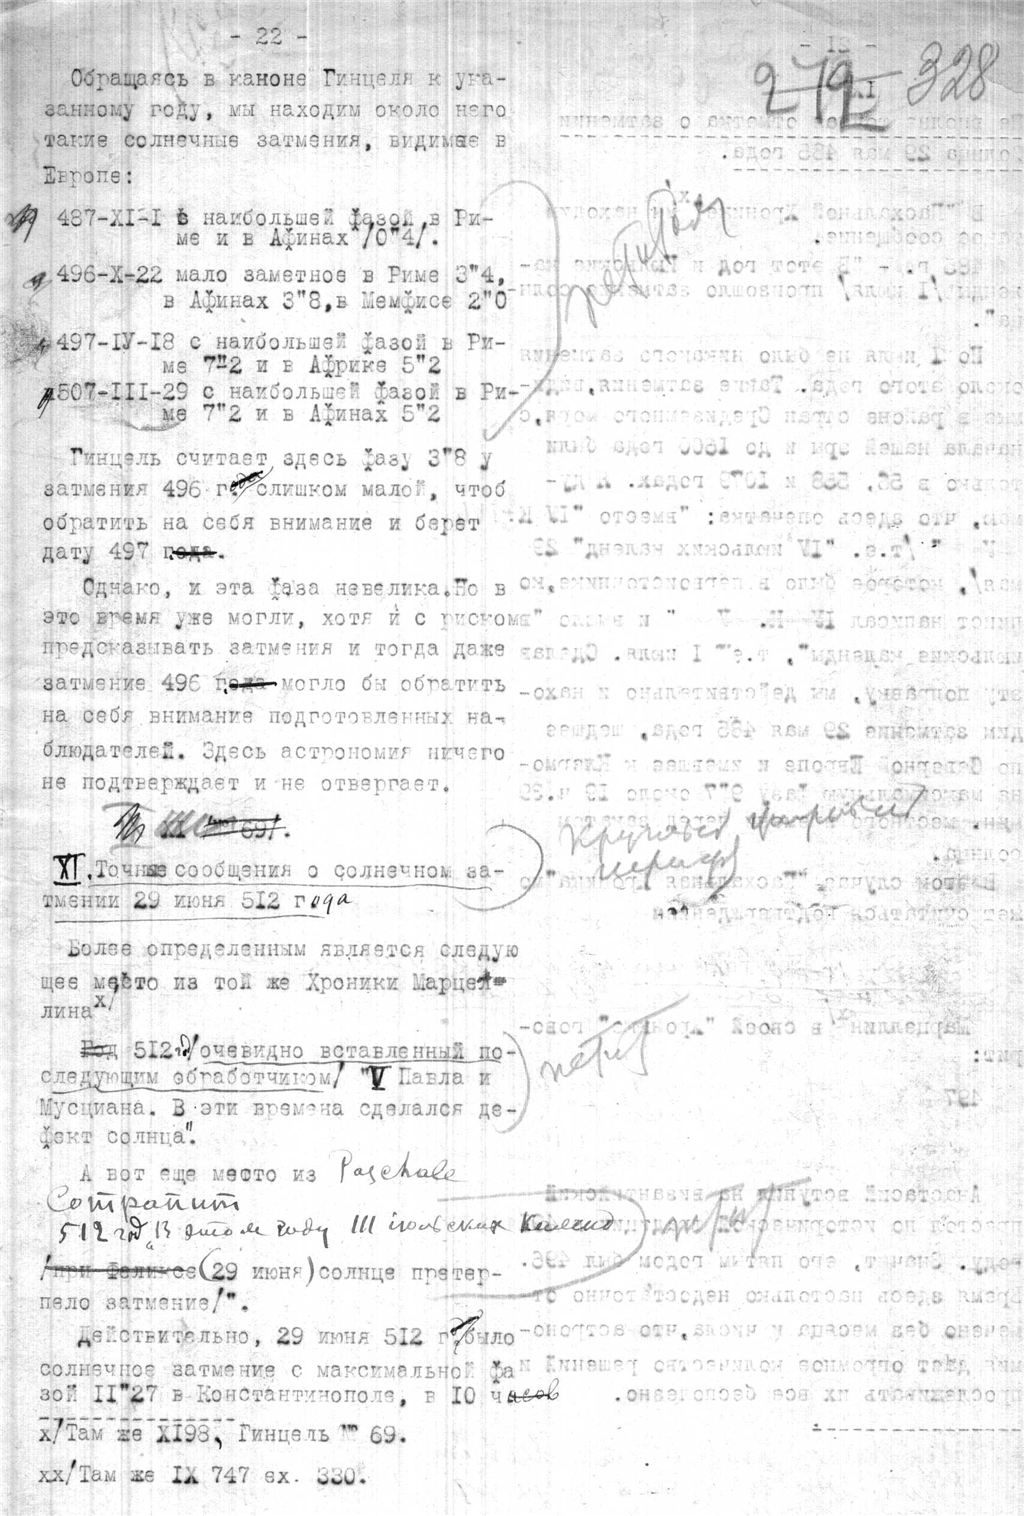 - 22 -
328
Обращаясь в каноне Гинцеля к ука-
занному году, мы находим около него
такие солнечные затмения, видимые в
Европе:
487-XI-I с наибольшей фазой в Ри-
ме и в Афинах /0"4/.
496-X-22 мало заметное в Риме 3"4,
в Афинах 3"8, в Мемфисе 2"0
497-IУ-I8 с наибольшей фазой в Ри-
ме 7"2 и в Африке 5"2
507-III-29 с наибольшей фазой в Ри-
ме 7"2 и в Афинах 5"2
петит
Гинцель считает здесь фазу 3"8 у
затмения 496 года слишком малой, чтоб
обратить на себя внимание и берет
дату 497 года.
Однако, и эта фаза невелика. Но в
это время уже могли, хотя и с риском
предсказывать затмения и тогда даже
затмение 496 года могло бы обратить
на себя внимание подготовленных на-
блюдателей. Здесь астрономия ничего
не подтверждает и не отвергает.
69/.
XI. Точные сообщения о солнечном за-
тмении 29 июня 5I2 года
Более определенным является следую
щее место из той же Хроники Марцел-
лина x/
Год 5I2 /очевидно вставленный по-
следующим обработчиком/ "V Павла и
Мусциана. В эти времена сделался де-
фект солнца".
петит
А вот еще место из Paschale
512 год "В этом году III июльских Календ
петит
/при Феликсе (29 июня) солнце претер-
пело затмение/".
Действительно, 29 июня 5I2 г. было
солнечное затмение с максимальной фа
зой II"27 в Константинополе, в I0 часов
x/Там же XI98, Гинцель № 69.
xx/Там же IX 747 ex. 330.